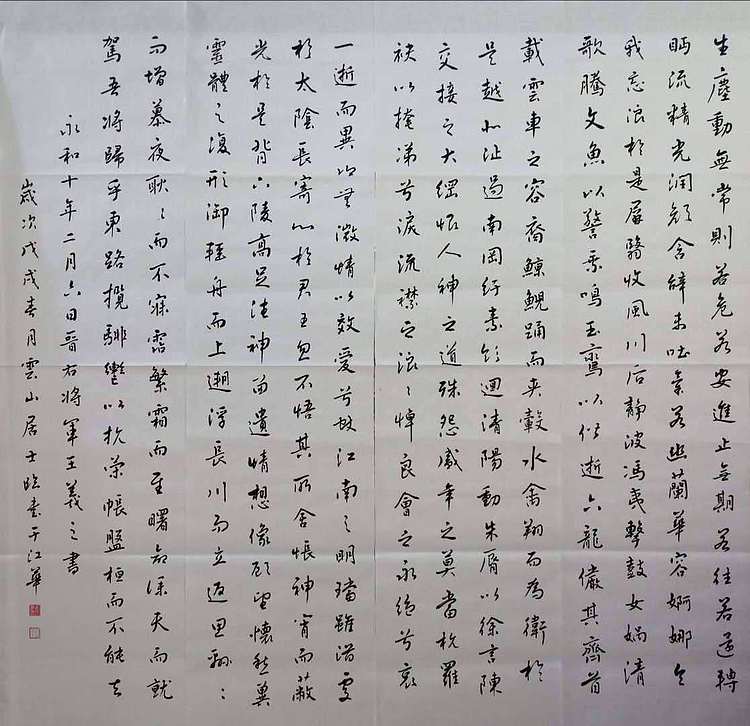 生塵動無常則若危若安進止無期若往若還轉
眄流精光潤顏含辭未吐氣若幽蘭華容婀娜令
我忘湌於是屏翳收風川后靜波馮夷擊鼓女媧清
歌騰文魚以警乘鳴玉鸞以偕逝六龍儼其齊首
載雲車之容裔鯨鯢踊而夾轂水禽翔而為衛於
是越北沚過南岡紆素領迴清陽動朱脣以徐言陳
交接之大綱恨人神之道殊怨盛年之莫當抗羅
袂以掩涕兮淚流襟之浪〻悼良會之永絕兮哀
一逝而異鄉無微情以效愛兮獻江南之明璫雖潛處
於太陰長寄心於君王忽不悟其所舍悵神宵而蔽
光於是背下陵高足往神留遺情想像顧望懷愁冀
靈體之復形御輕舟而上遡浮長川而忘返思緜〻
而增慕夜耿〻而不寐霑繁霜而至曙命僕夫而就
駕吾將歸乎東路攬騑轡以抗策悵盤桓而不能去
永和十年二月六日晉右將軍王羲之書
歲次戊戌春月雲山居士臨書于江華